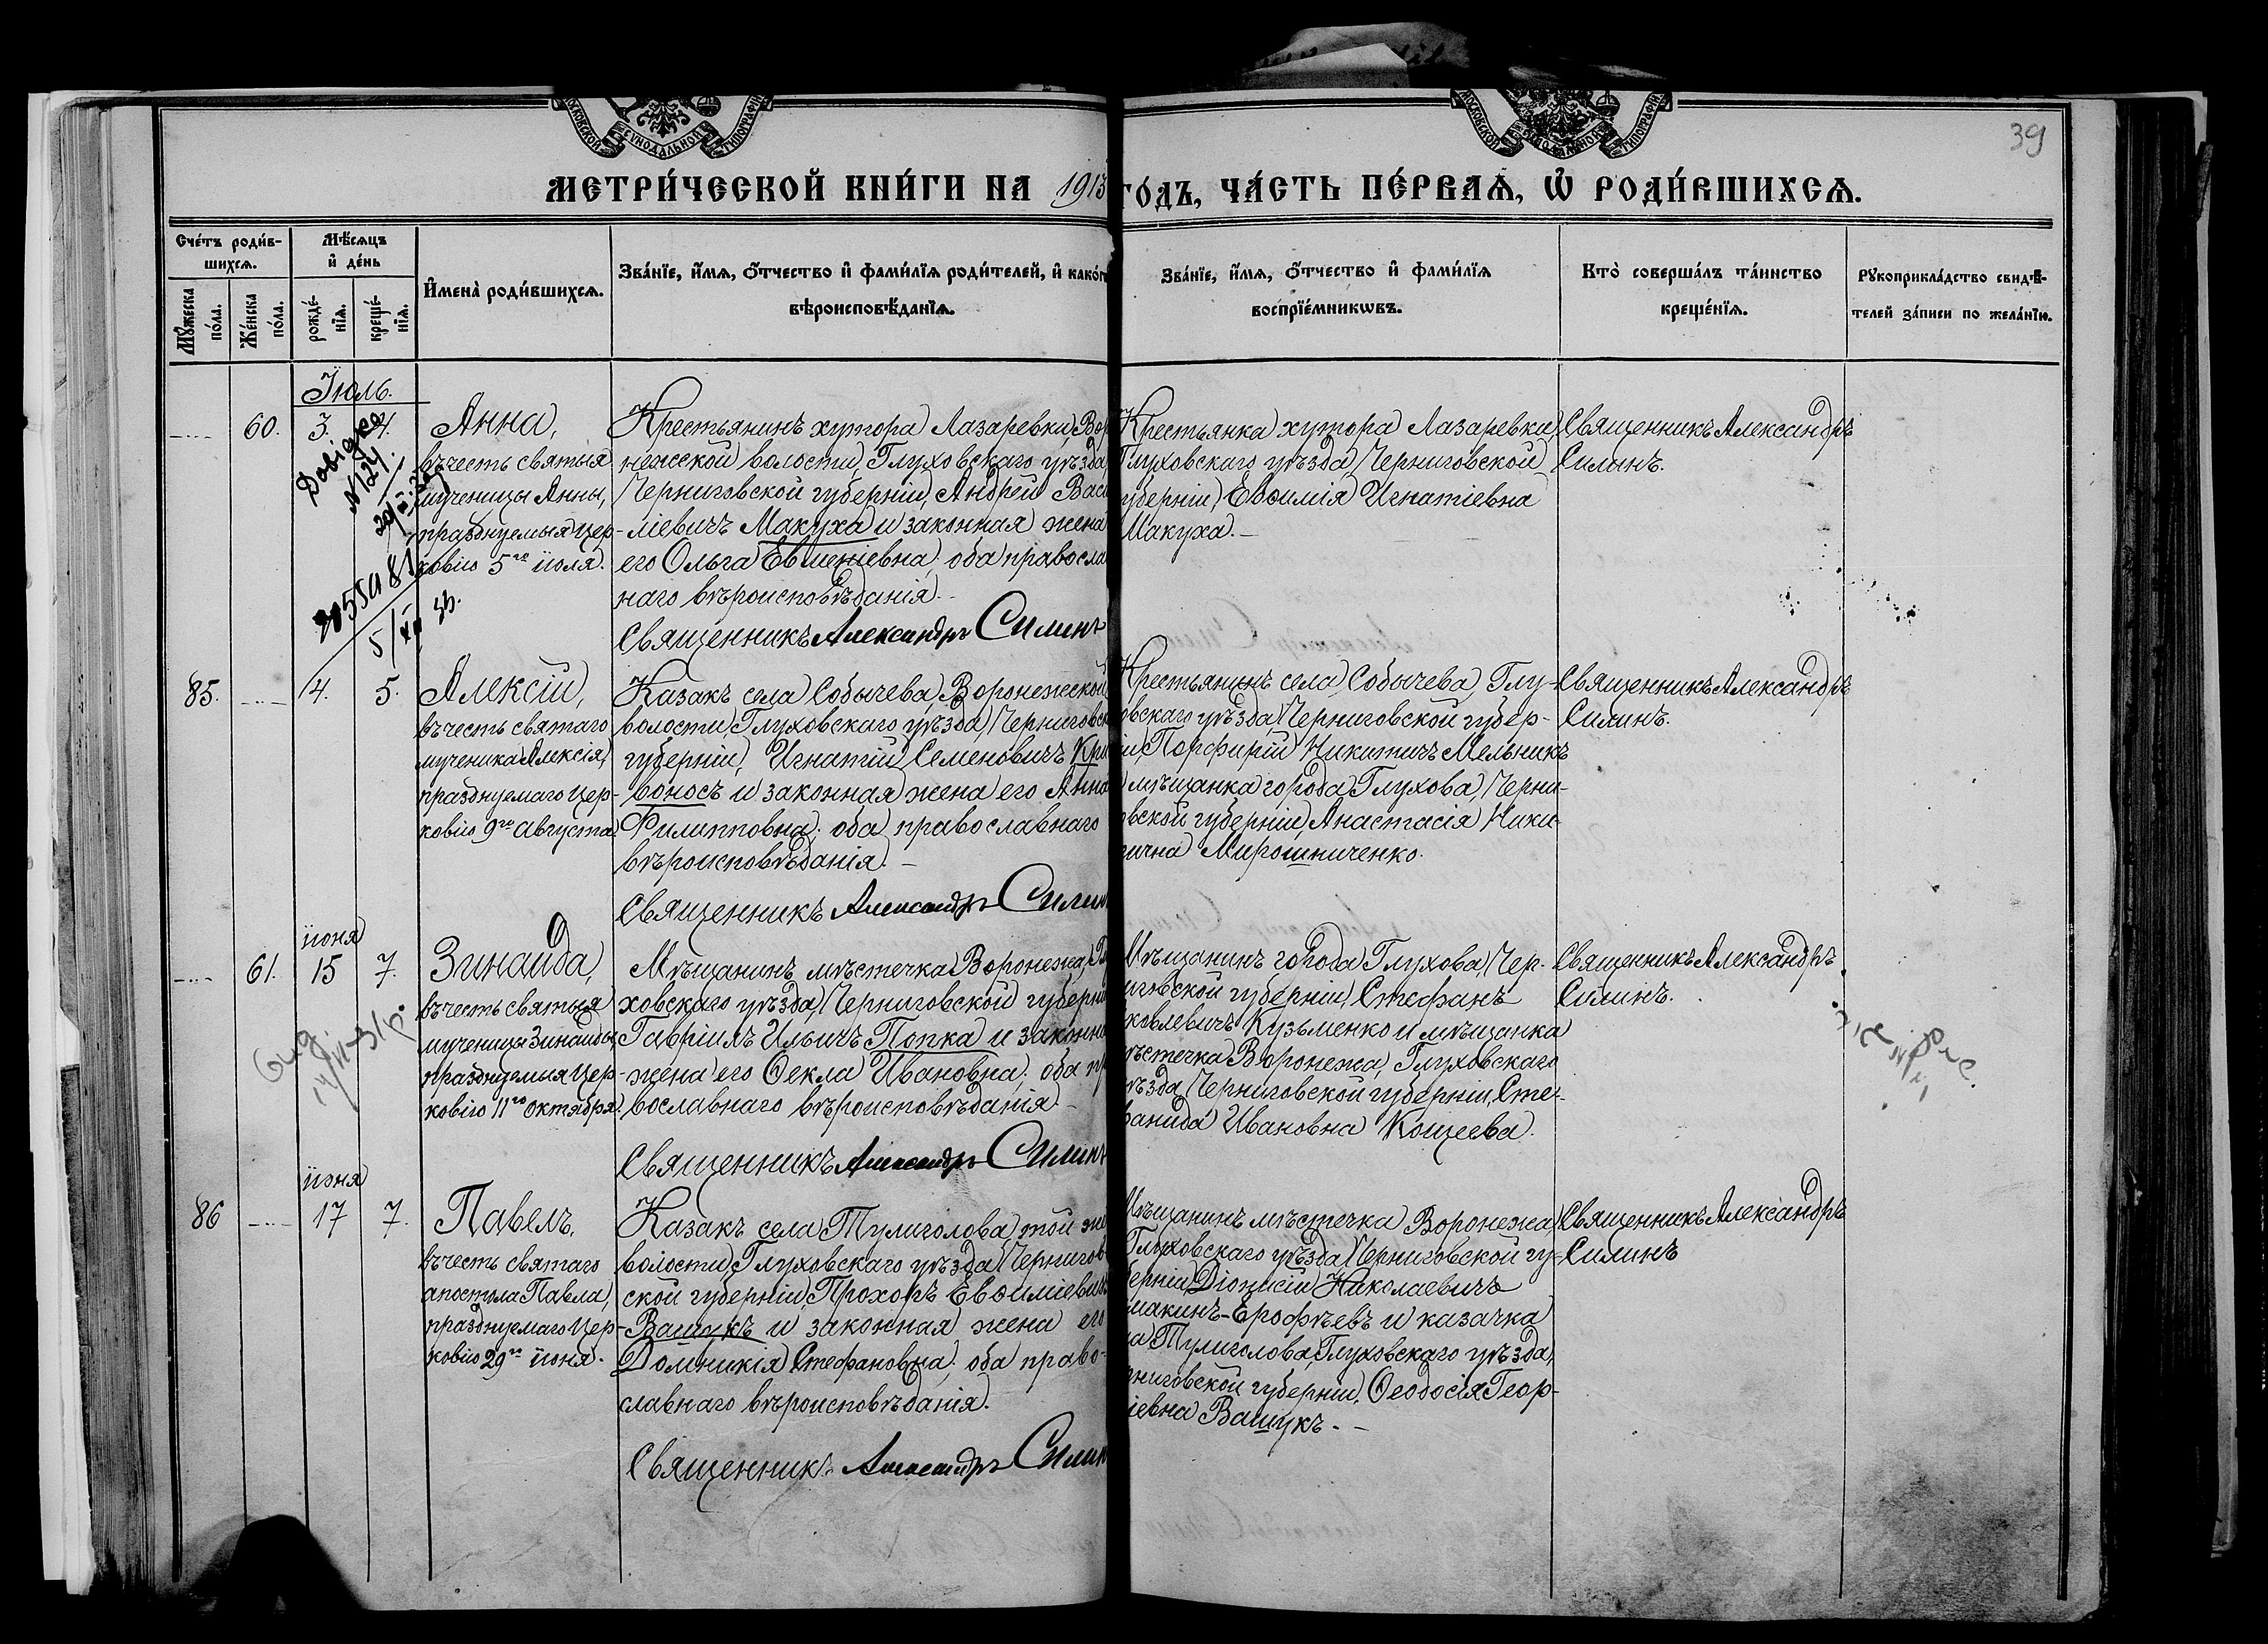 39
МЕТРИ́ЧЕСКОЙ КНИ́ГИ НА 1913 ГО́ДЪ, ЧА́СТЬ ПЕ́РВАѦ, Ѡ҆ РОДИ́ВШИХСѦ.
Сче́тъ роди́в-
шихсѧ.
Мꙋ́жеска
по́ла.
Же́нска
по́ла.
Мѣ́сѧцъ
и҆ де́нь
рожде́-
нїѧ.
креще́-
нїѧ.
И҆мена̀ роди́вшихсѧ.
Зва́нїе, и҆́мѧ, ѻ҆́тчество и҆ фами́лїѧ роди́телей, и҆ како́г
вѣроисповѣ́данїѧ.
Зва́нїе, и҆́мѧ, ѻ҆́тчество и҆ фами́лїѧ
воспрїе́мникѡвъ.
Кто̀ соверша́лъ та́инство
креще́нїѧ.
Рꙋкоприкла́дство свидѣ́-
телей за́писи по жела́нїю.
Іюль.
60. 3. 4.
Довідка
N 124
Анна,
въ честь святыя
мученицы Анны,
празднуемыя Цер-
ковію 5го іюля.
Крестьянинъ хутора Лазаревки, Вор
нежской волости, Глуховскаго уѣзда,
Черниговской губерніи, Андрей Васи
ліевичъ Макуха и законная жена
его Ольга Евменіевна; оба правосла
наго вѣроисповѣданія.
Священникъ Александръ Силинъ
Крестьянка хутора Лазаревки,
Глуховскаго уѣзда, Черниговской
губерніи, Евѳимія Игнатіевна
Макуха.
Священникъ Александръ
Силинъ.
85. 4. 5.
Алексій,
въ честь святаго
мученика Алексія,
празднуемаго Цер-
ковію 9го августа.
Казакъ села Собычева, Воронежской
волости, Глуховскаго уѣзда, Черниговск
губерніи, Игнатій Семеновичъ Кри
воносъ и законная жена его Анна
Филипповна; оба православнаго
вѣроисповѣданія.
Священникъ Александръ Силин
Крестьянинъ села Собычева, Глу-
овскаго уѣзда, Черниговской губер-
іи, Порфирій Никитичъ Мельникъ
мѣщанка города Глухова, Черни-
овской губерніи, Анастасія Ники-
ична Мирошниченко.
Священникъ Александръ
Силинъ.
іюня
61. 15 7.
Зинаида,
въ честь святыя
мученицы Зинаиды,
празднуемыя Цер-
ковію 11го октября.
Мѣщанинъ мѣстечка Воронежа, Гл
ховскаго уѣзда, Черниговской губерні
Гавріилъ Ильичъ Попка и законна
жена его Ѳекла Ивановна; оба пр
вославнаго вѣроисповѣданія.
Священникъ Александръ Силинъ
Мѣщанинъ города Глухова, Чер-
иговской губерніи, Стефанъ
ковлевичъ Кузьменко и мѣщанка
ѣстечка Воронежа, Глуховскаго
ѣзда, Черниговской губерніи, Сте-
фанида Ивановна Кощеева.
Священникъ Александръ
Силинъ.
іюня
86 17 7.
Павелъ,
въ честь святаго
апостола Павла,
празднуемаго Цер-
ковію 29го іюня.
Казакъ села Тулиголова, той же
волости, Глуховскаго уѣзда, Чернигов
ской губерніи, Прохоръ Евѳиміевичъ
Вашукъ и законная жена его
Домникія Стефановна; оба право-
славнаго вѣроисповѣданія.
Священникъ Александръ Силин
Мѣщанинъ мѣстечка Воронежа,
Глуховскаго уѣзда, Черниговской гу-
берніи, Діонисій Николаевичъ
макинъ-Ерофѣевъ и казачка
ла Тулиголова, Глуховскаго уѣзда,
рниговской губерніи, Ѳеодосія Геор-
іевна Вашукъ.
Священникъ Александръ
Силинъ